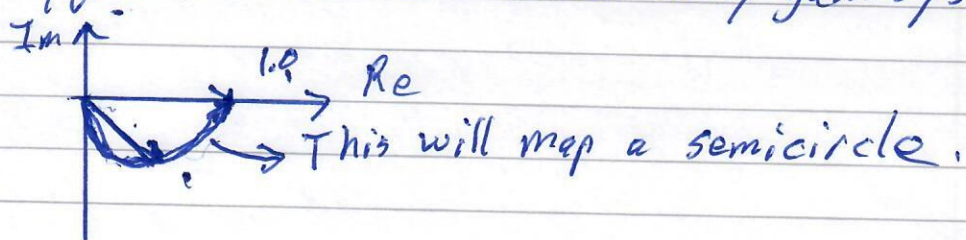 Im
1.0
Re
This will map a semicircle.